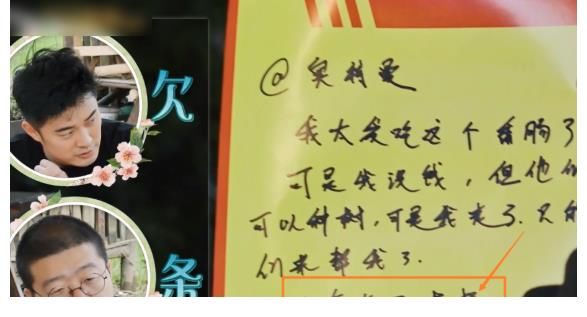 欠条
@奥特曼
我太爱吃这个香肠了
可是我没钱,但他们
可以种树,可是我走了.只
们来帮我了.